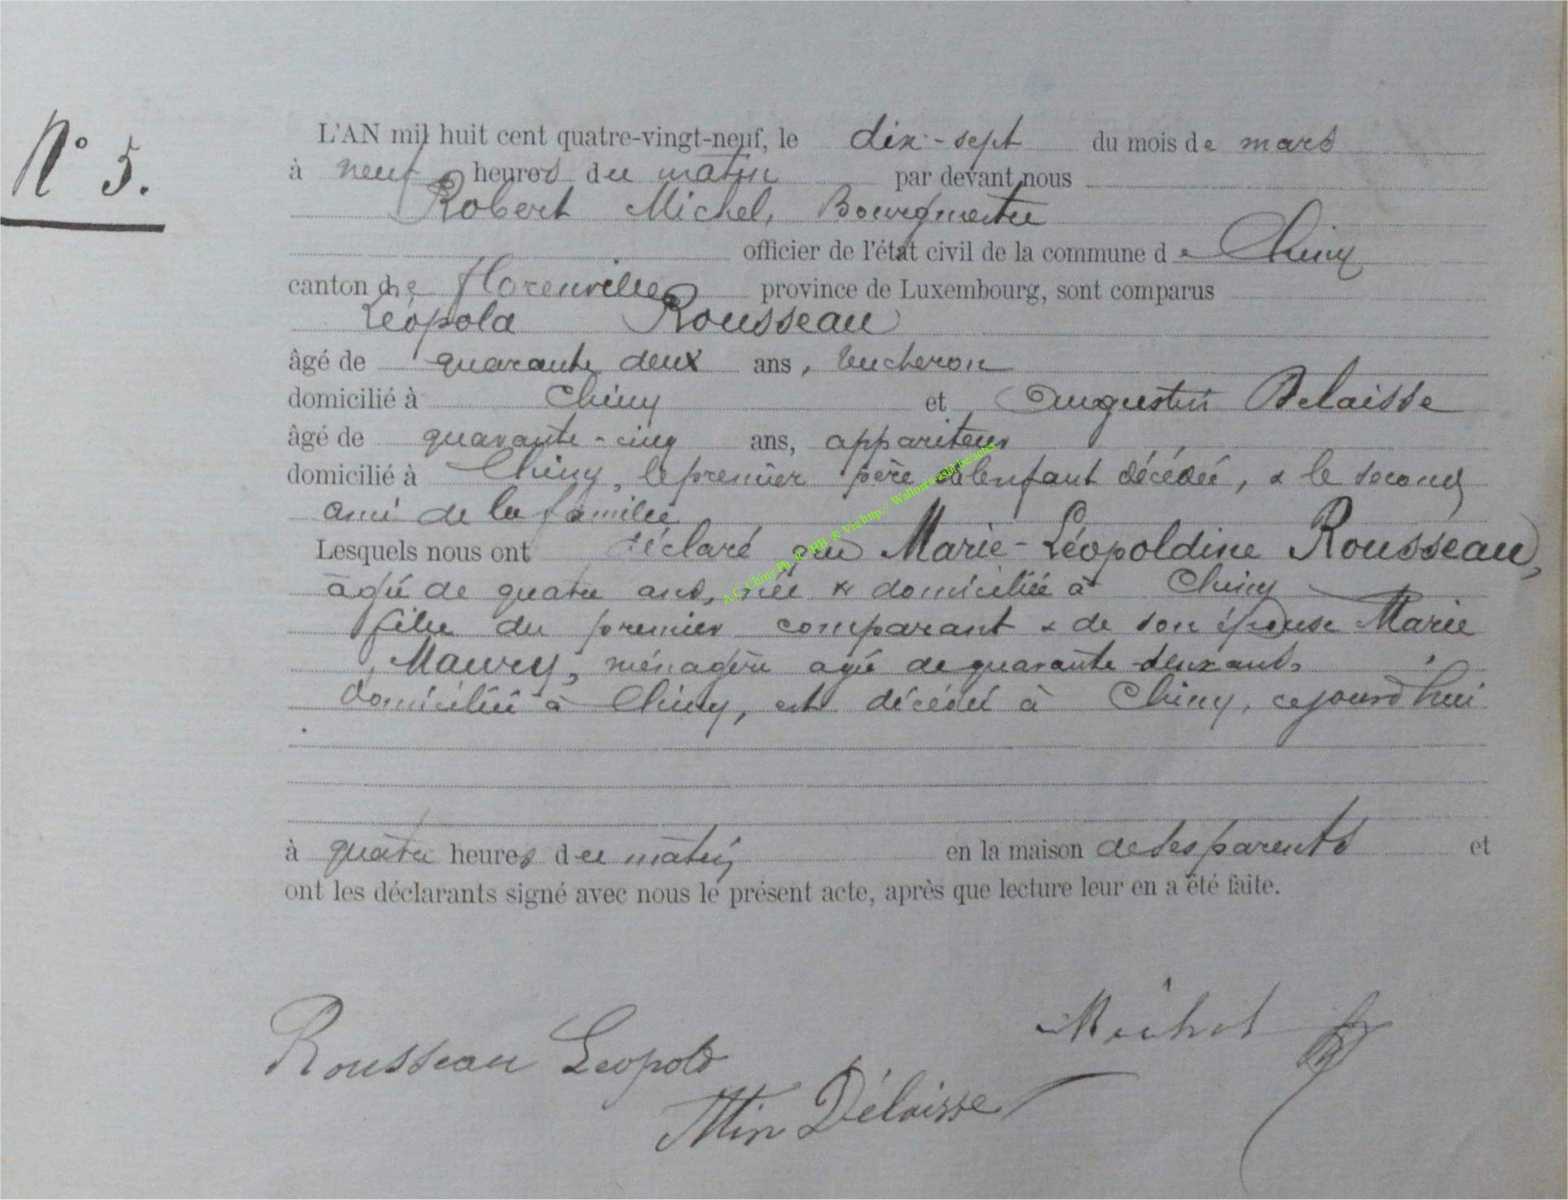 N° 5.
L'AN mil huit cent quatre-vingt-neuf, le dix-sept du mois de mars
à neuf heures du matin par devant nous
Robert Michel, Bourgmestre
officier de l'état civil de la commune de Chiny
canton de Florenville province de Luxembourg, sont comparus
Léopold Rousseau
âgé de quarante deux ans, bucheron
domicilié à Chiny et Augustin Delaisse
âgé de quarante-cinq ans, appariteur
domicilié à Chiny, le premier père de l'enfant décédée, & le second
ami de la famille
Lesquels nous ont déclaré que Marie-Léopoldine Rousseau,
âgée de quatre ans, née & domiciliée à Chiny
fille du premier comparant & de son épouse Marie
Maury, ménagère agée de quarante-deux ans,
domiciliée à Chiny, est décédée à Chiny, cejourd'hui
à quatre heures du matin en la maison de ses parents et
ont les déclarants signé avec nous le présent acte, après que lecture leur en a été faite.
Rousseau Léopold
Délaisse